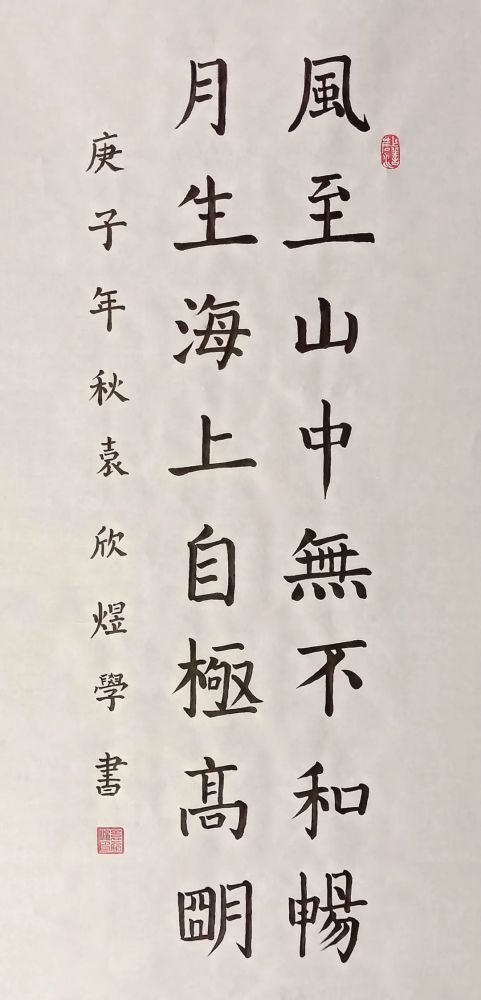 風至山中無不和暢
月生海上自極髙朙
庚子年秋袁欣煜學書